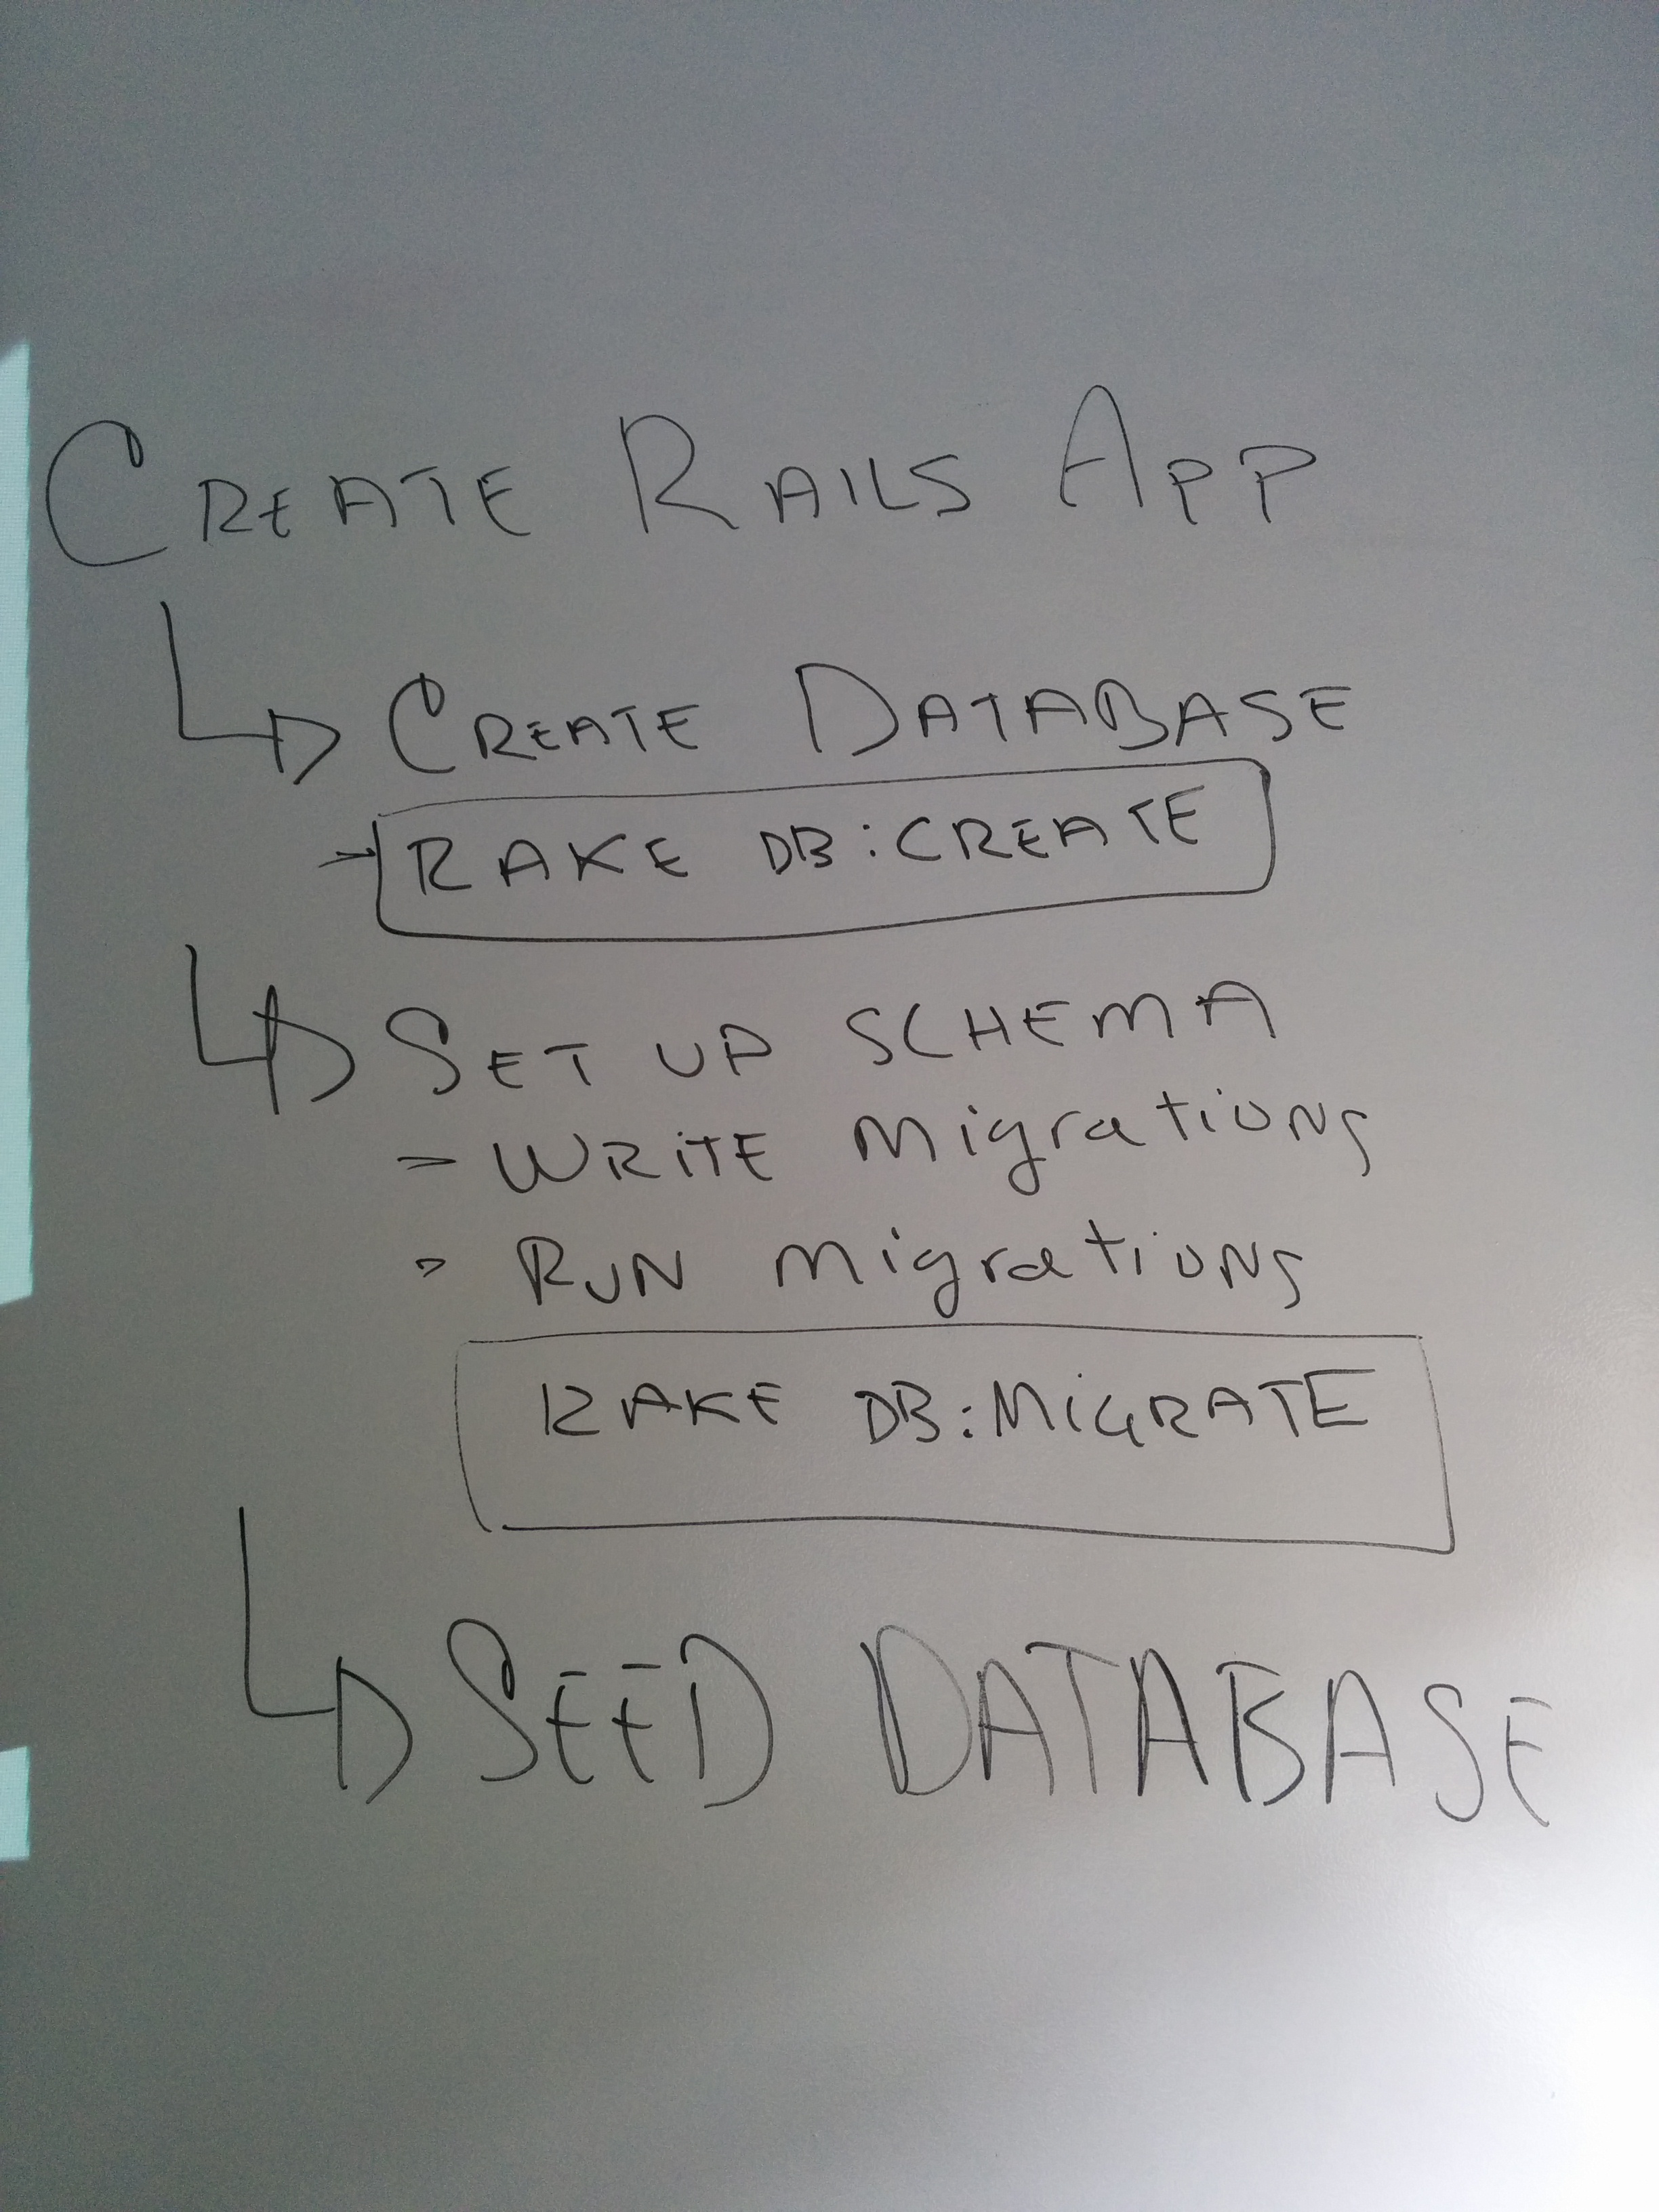 CREATE RAILS APP
CREATE DATABASE
RAKE DB:CREATE
SET UP SCHEMA
- WRITE Migrations
- RUN Migrations
RAKE DB:MIGRATE
SEED DATABASE